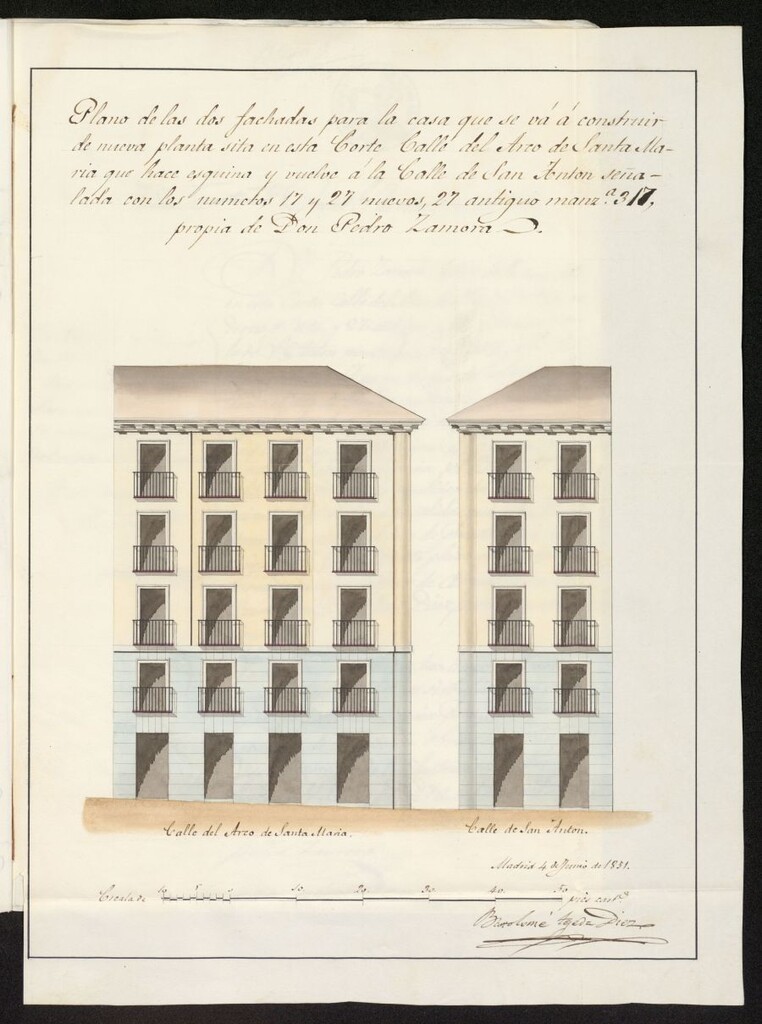 Plano de las dos fachadas para la casa que se vá á construir
de nueva planta sita en esta Corte Calle del Arco de Santa Ma-
ria que hace esquina y vuelve á la Calle de San Anton seña-
lada con los numeros 17 y 27 nuevos, 27 antiguo manz.ª 317,
propia de Don Pedro Zamora
Calle del Arco de Santa Maria.
Calle de San Anton.
Madrid 4 de Junio de 1851.
Escala de 10 5 10. 20. 30. 40. 50 pies cast.s
Bartolomé Tejeda Diez